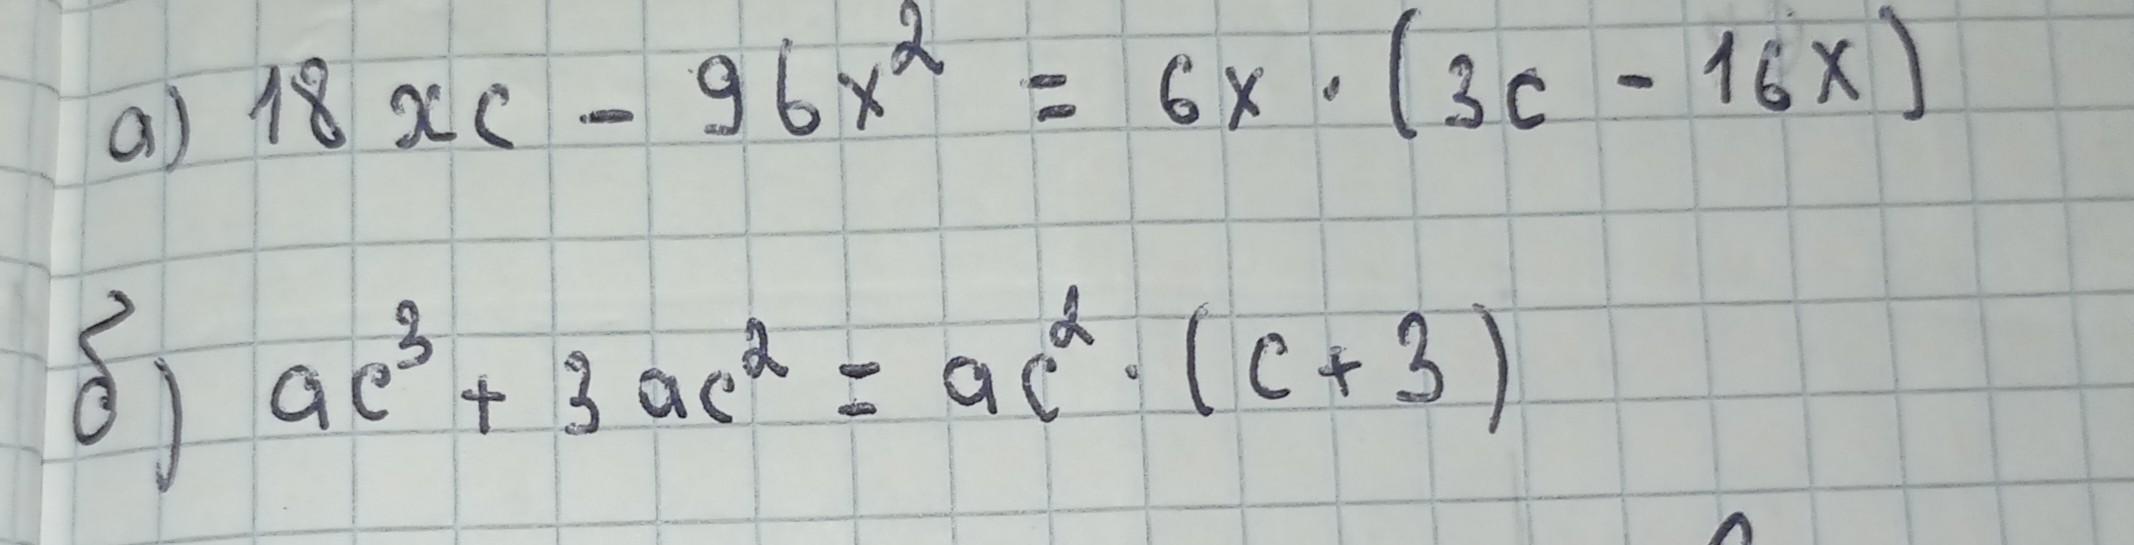 а) 18xc - 96x² = 6x · (3c - 16x)
б) ac³ + 3ac² = ac² · (c + 3)